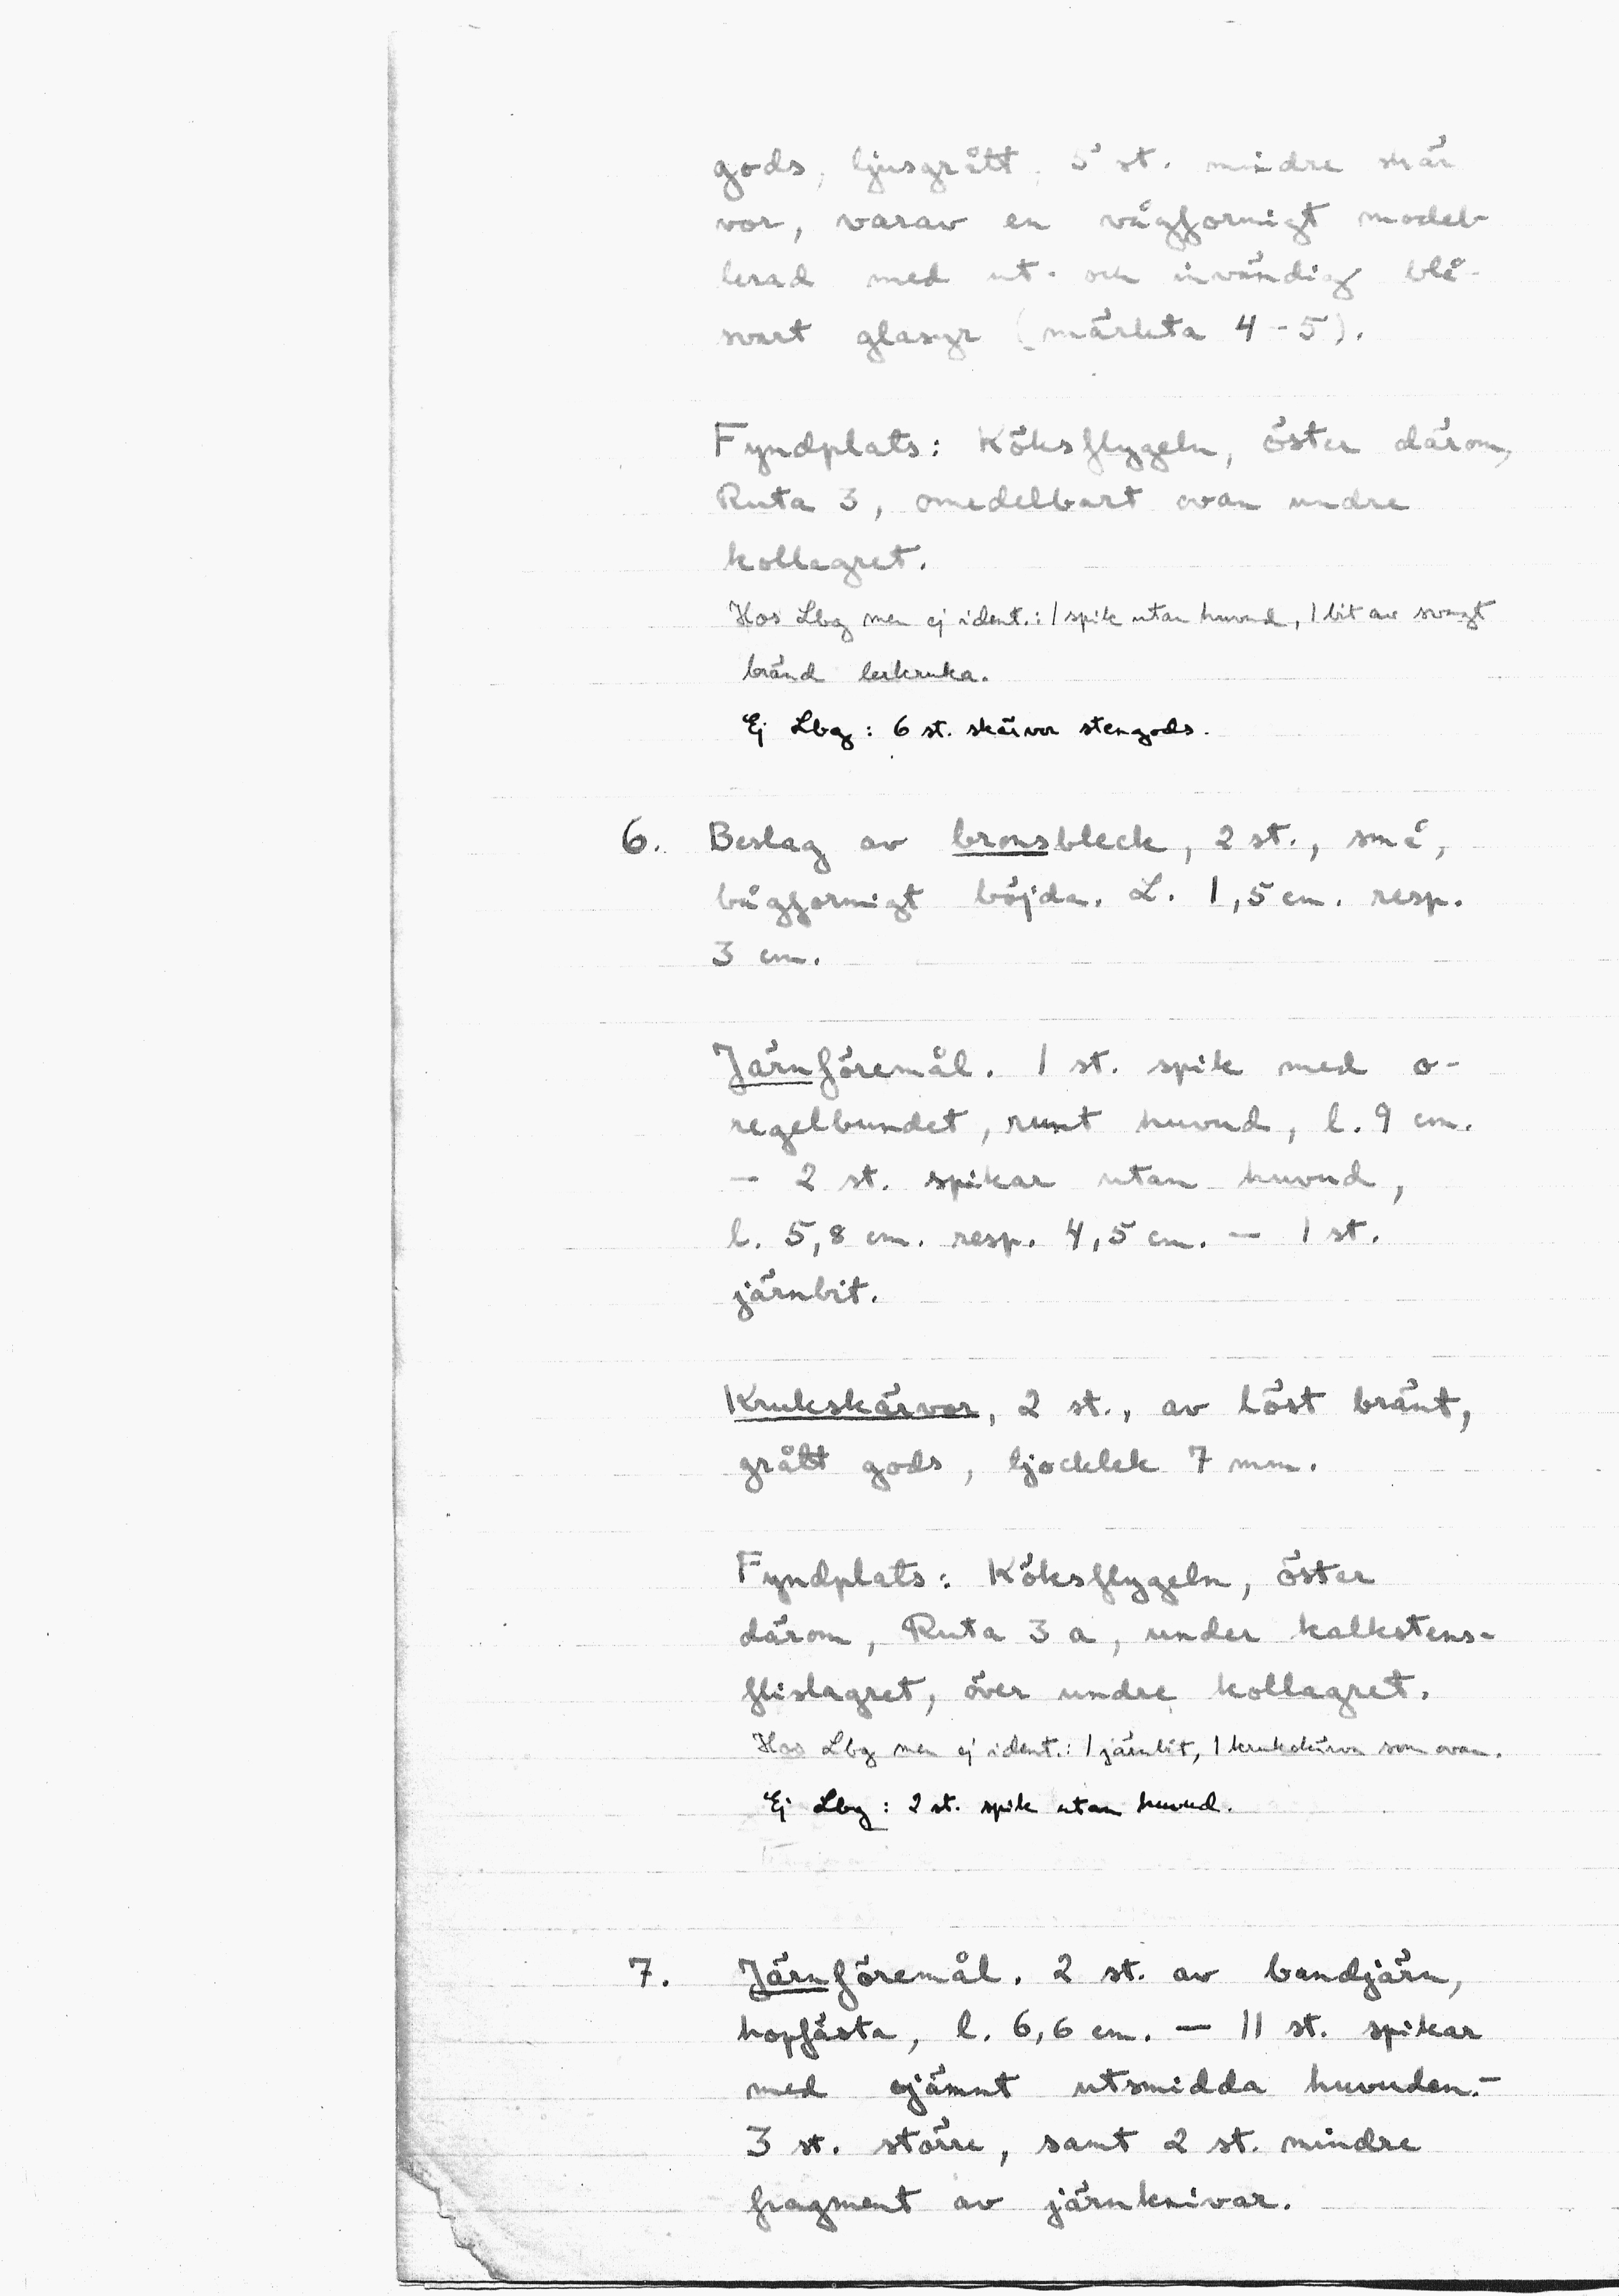 gods, ljusgrått, 5 st. mindre skär
vor, varav en vågformigt model-
lerad med ut- och invändig blå-
svart glasyr (märkta 4-5).
Fyndplats: Köksflygeln, öster därom,
Ruta 3, omedelbart ovan undre
kollagret.
Hos Lbg men ej ident.: 1 spik utan huvud, 1 bit av svagt
bränd lerkruka.
Ej Lbg: 6 st. skärvor stengods.
6. Beslag av bronsbleck, 2 st., små,
bågformigt böjda. L. 1,5 cm. resp.
3 cm.
Järnföremål. 1 st. spik med o-
regelbundet, runt huvud, l. 9 cm.
— 2 st. spikar utan huvud,
l. 5,8 cm. resp. 4,5 cm. — 1 st.
järnbit.
Krukskärvor, 2 st., av löst bränt,
grått gods, tjocklek 7 mm.
Fyndplats: Köksflygeln, öster
därom, Ruta 3 a, under kalkstens-
flislagret, över undre kollagret.
Hos Lbg men ej ident.: 1 järnbit, 1 krukskärva som ovan.
Ej Lbg: 2 st. spik utan huvud.
7. Järnföremål. 2 st. av bandjärn,
hopfästa, l. 6,6 cm. — 11 st. spikar
med ojämnt utsmidda huvuden.—
3 st. större, samt 2 st. mindre
fragment av järnknivar.